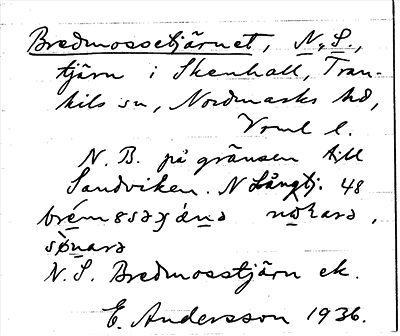 Bredmossetjärnet, N., S.,
tjärn i Skenhall, Tran-
kils sn, Nordmarks hd,
Vrml l.
N. B. på gränsen till
Sandviken. N Långtj. 48
nǿkarə,
sǿnarə
N. S. Bredmosstjärn ek.
E. Andersson 1936.